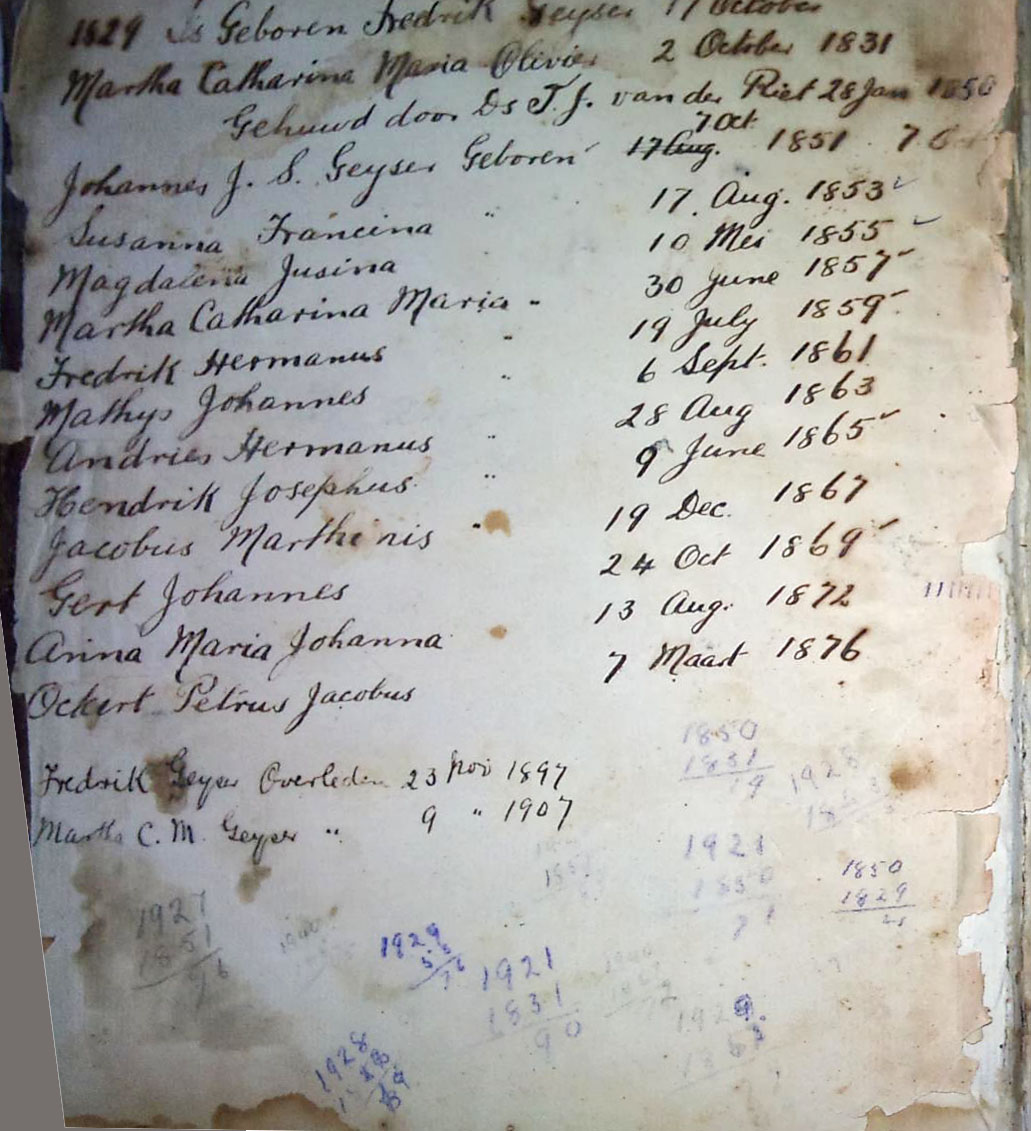 1829 Is Geboren Fredrik Geyser 17 October
Martha Catharina Maria Olivier 2 October 1831
Gehuwd door Ds T. J. van der Riet 28 Jan 1850
7 Oct
Johannes J. S. Geyser Geboren 17 Aug. 1851
Susanna Francina " 17. Aug. 1853
Magdalena Jusina 10 Mei 1855
Martha Catharina Maria " 30 June 1857
Fredrik Hermanus " 19 July 1859
Mathys Johannes " 6 Sept. 1861
Andries Hermanus " 28 Aug 1863
Hendrik Josephus " 9 June 1865
Jacobus Marthinis " 19 Dec. 1867
Gert Johannes 24 Oct 1869
Anna Maria Johanna 13 Aug. 1872
Ockert Petrus Jacobus 7 Maart 1876
Fredrik Geyser Overleden 23 Nov 1897
Martha C. M. Geyser " 9 " 1907
1850
1831
19
1928
1921
1850
71
1850
1829
21
1927
1851
76
1929
1921
1831
90
1929
1928